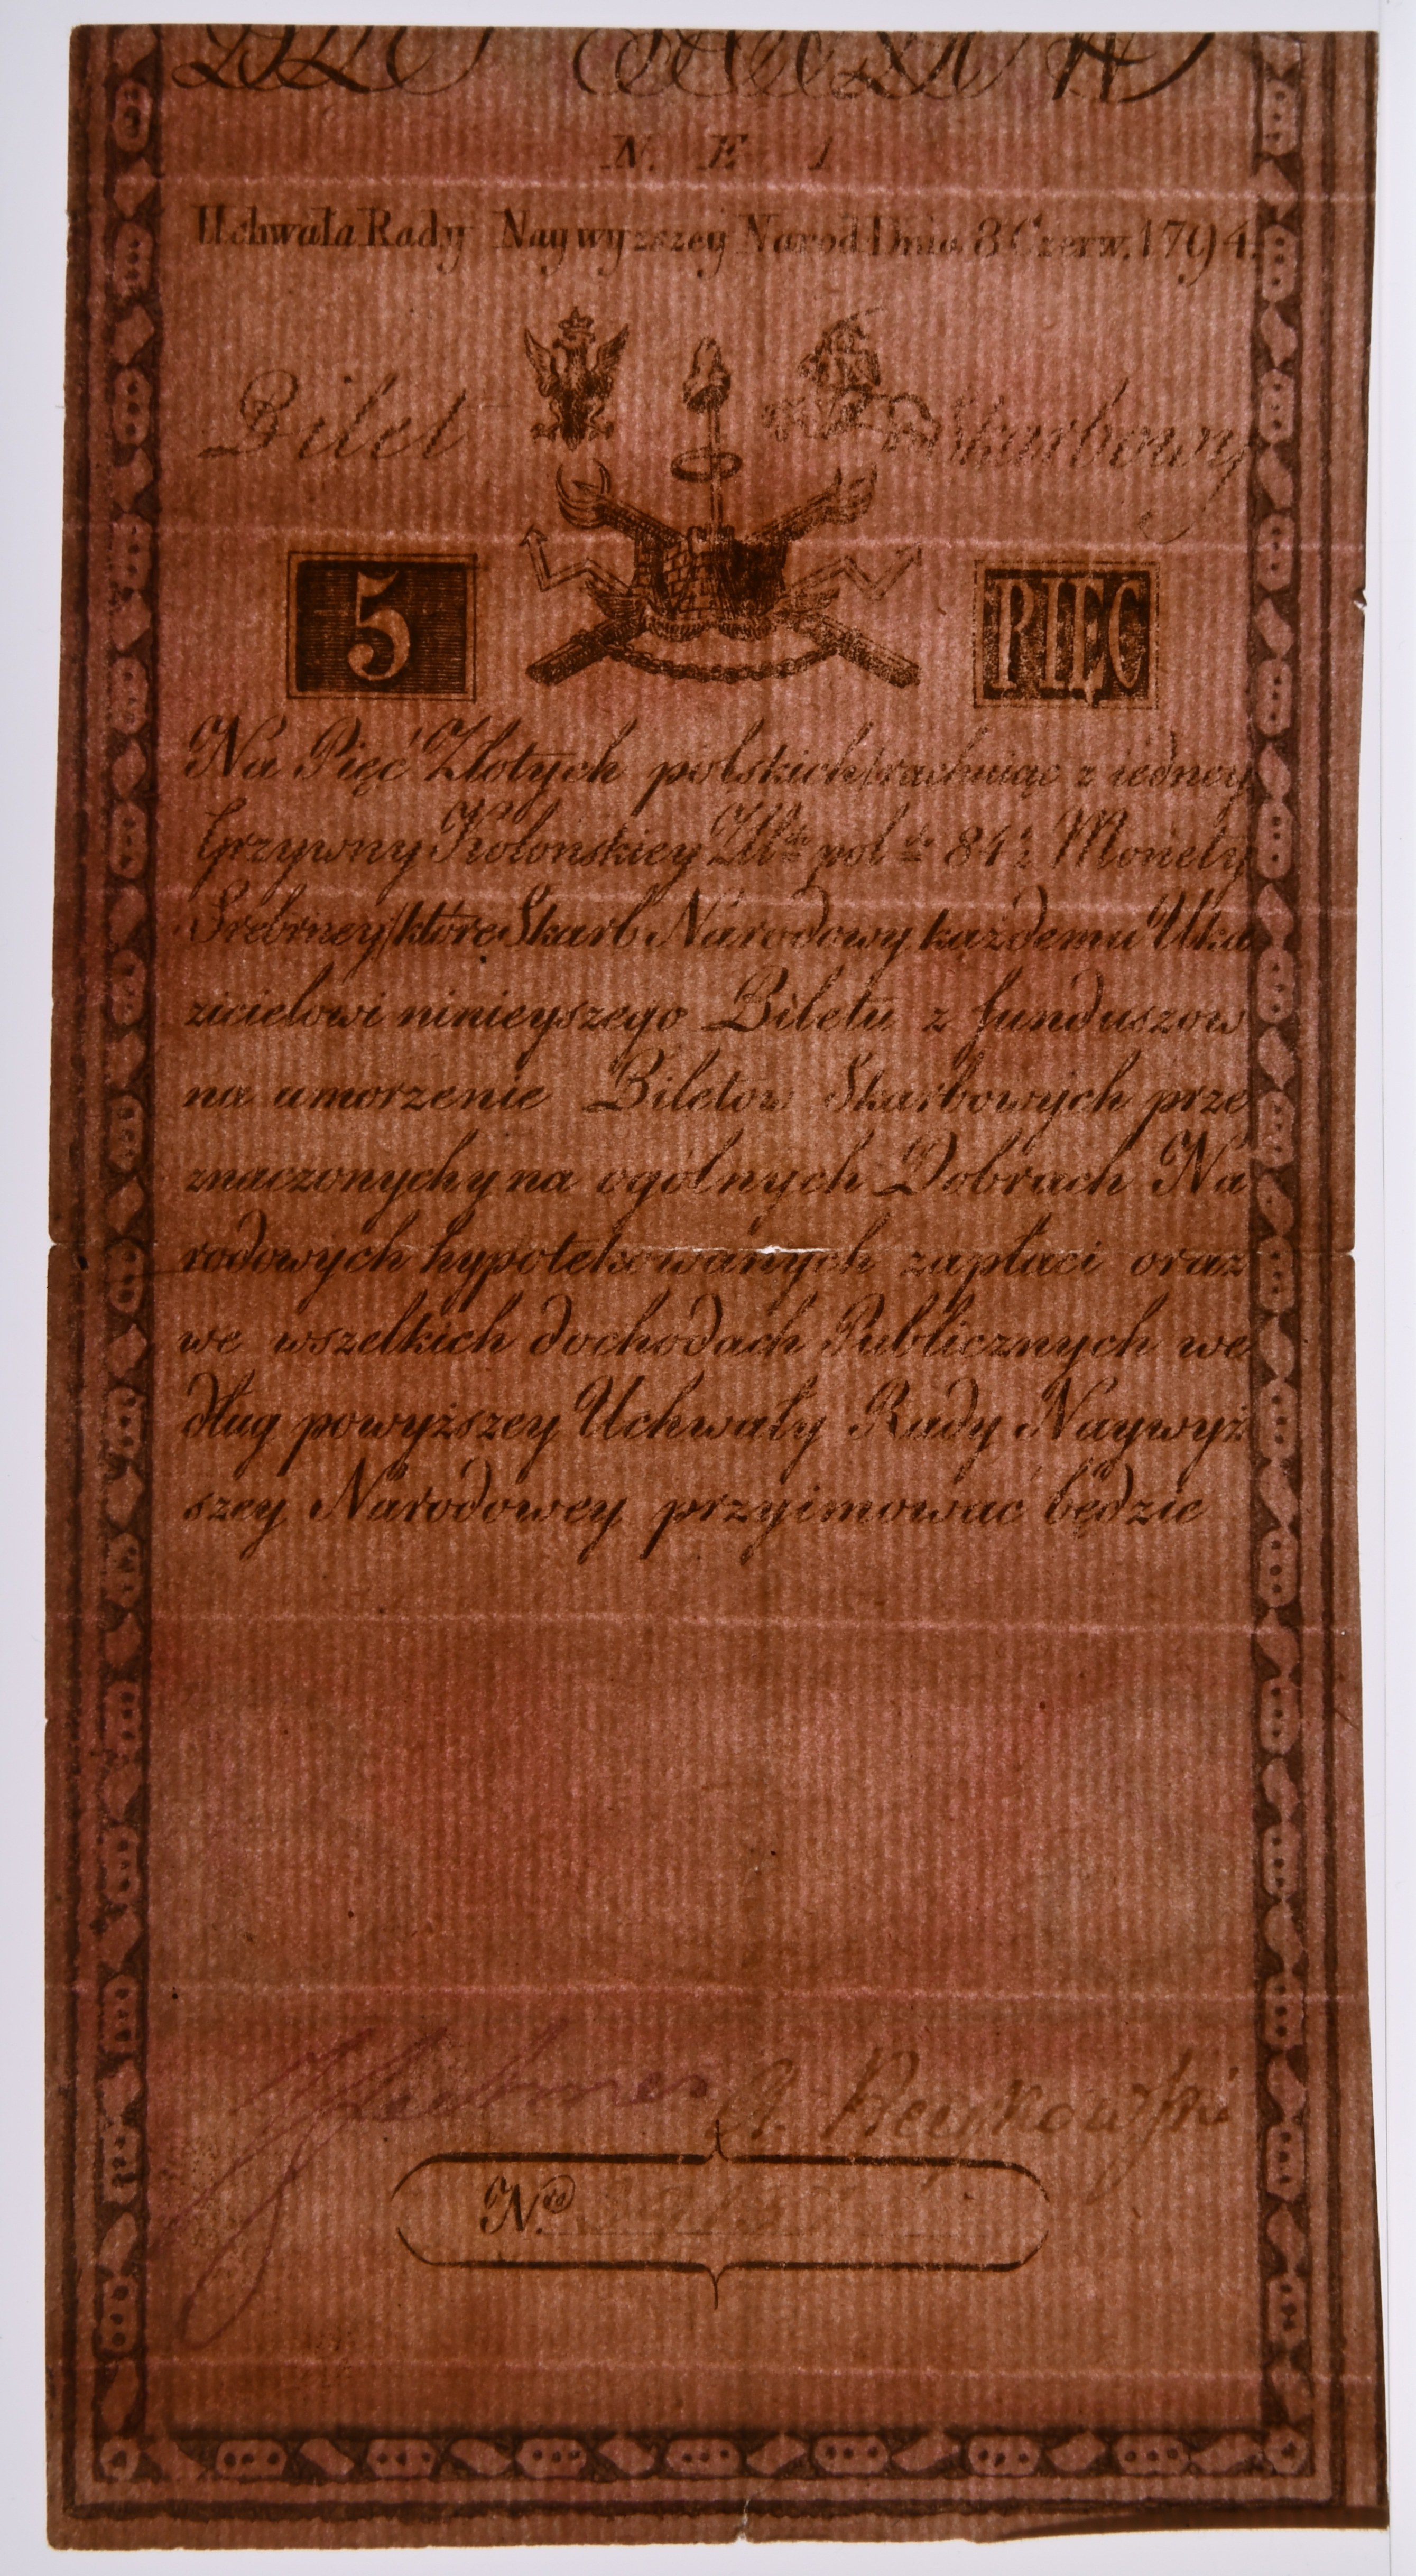 N. E 1
Uchwała Rady Naywyzszey Narod Dnia 8 Czerw. 1794.
Bilet Skarbowy
5 PIĘC
Na Pięć Złotych polskich/rachuiąc z iedney
Grzywny Kolonskiey Zł<sup>tch</sup> pol<sup>ch</sup> 84½ Monety
Srebrney/które Skarb Narodowy każdemu Uka
zicielowi ninieyszego Biletu z funduszow
na umorzenie Biletow Skarbowych prze
znaczonych y na ogólnych Dobrach Na
rodowych hypotekowanych zapłaci oraz
we wszelkich dochodach Publicznych we
dług powyższey Uchwały Rady Naywyż
szey Narodowey przyimować będzie
A. Reyskowski
N<sup>ro</sup>